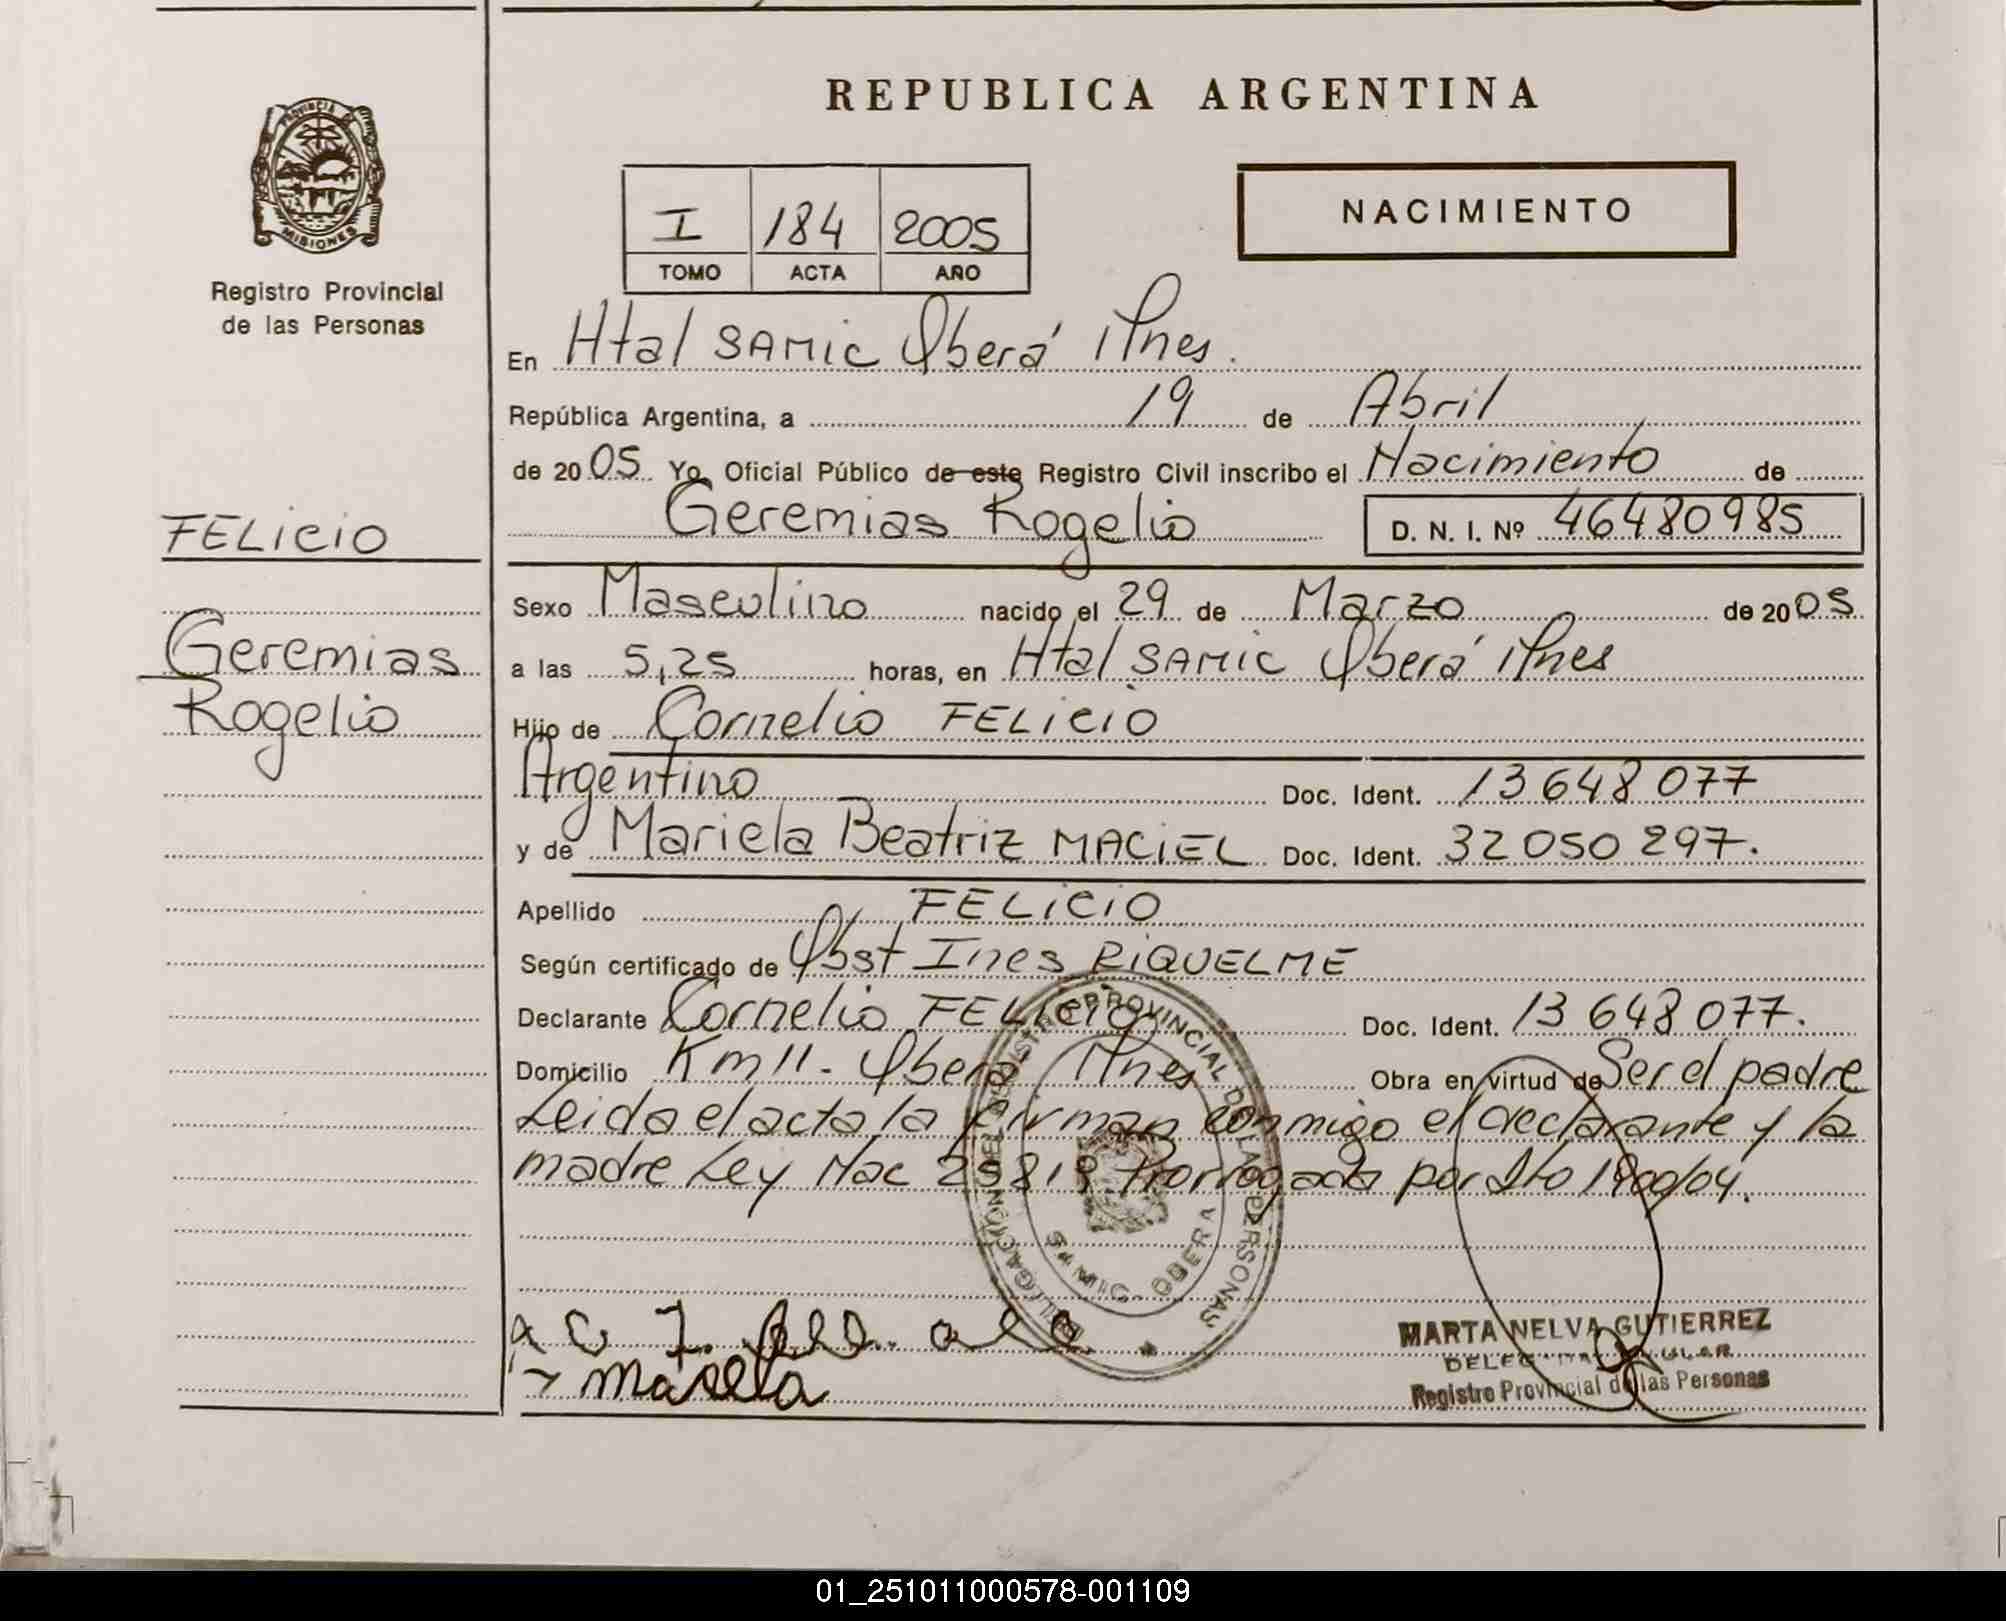 REPUBLICA ARGENTINA
PROVINCIA DE
MISIONES
Registro Provincial
de las Personas
I 184 2005
TOMO ACTA AÑO
NACIMIENTO
En Htal SAMIC Oberá Mnes.
República Argentina, a 19 de Abril
de 2005 Yo, Oficial Público de este Registro Civil inscribo el Nacimiento de
Geremias Rogelio D. N. I. Nº 46480985
FELICIO
Geremias
Rogelio
Sexo Masculino nacido el 29 de Marzo de 2005
a las 5,25 horas, en Htal SAMIC Oberá Mnes
Hijo de Cornelio FELICIO
Argentino Doc. Ident. 13 648 077
y de Mariela Beatriz MACIEL Doc. Ident. 32 050 297.
Apellido FELICIO
Según certificado de Obst Ines RIQUELME
Declarante Cornelio FELICIO Doc. Ident. 13 648 077.
Domicilio Km 11 - Oberá Mnes Obra en virtud de Ser el padre
Leida el acta la firman conmigo el declarante y la
madre Ley Nac 25819 Prorrogada por Dto 1900/04.
DELEGACION DEL REGISTRO PROVINCIAL DE LAS PERSONAS
SAMIC - OBERA
MARTA NELVA GUTIERREZ
DELEGADA TITULAR
Registro Provincial de las Personas
01_251011000578-001109